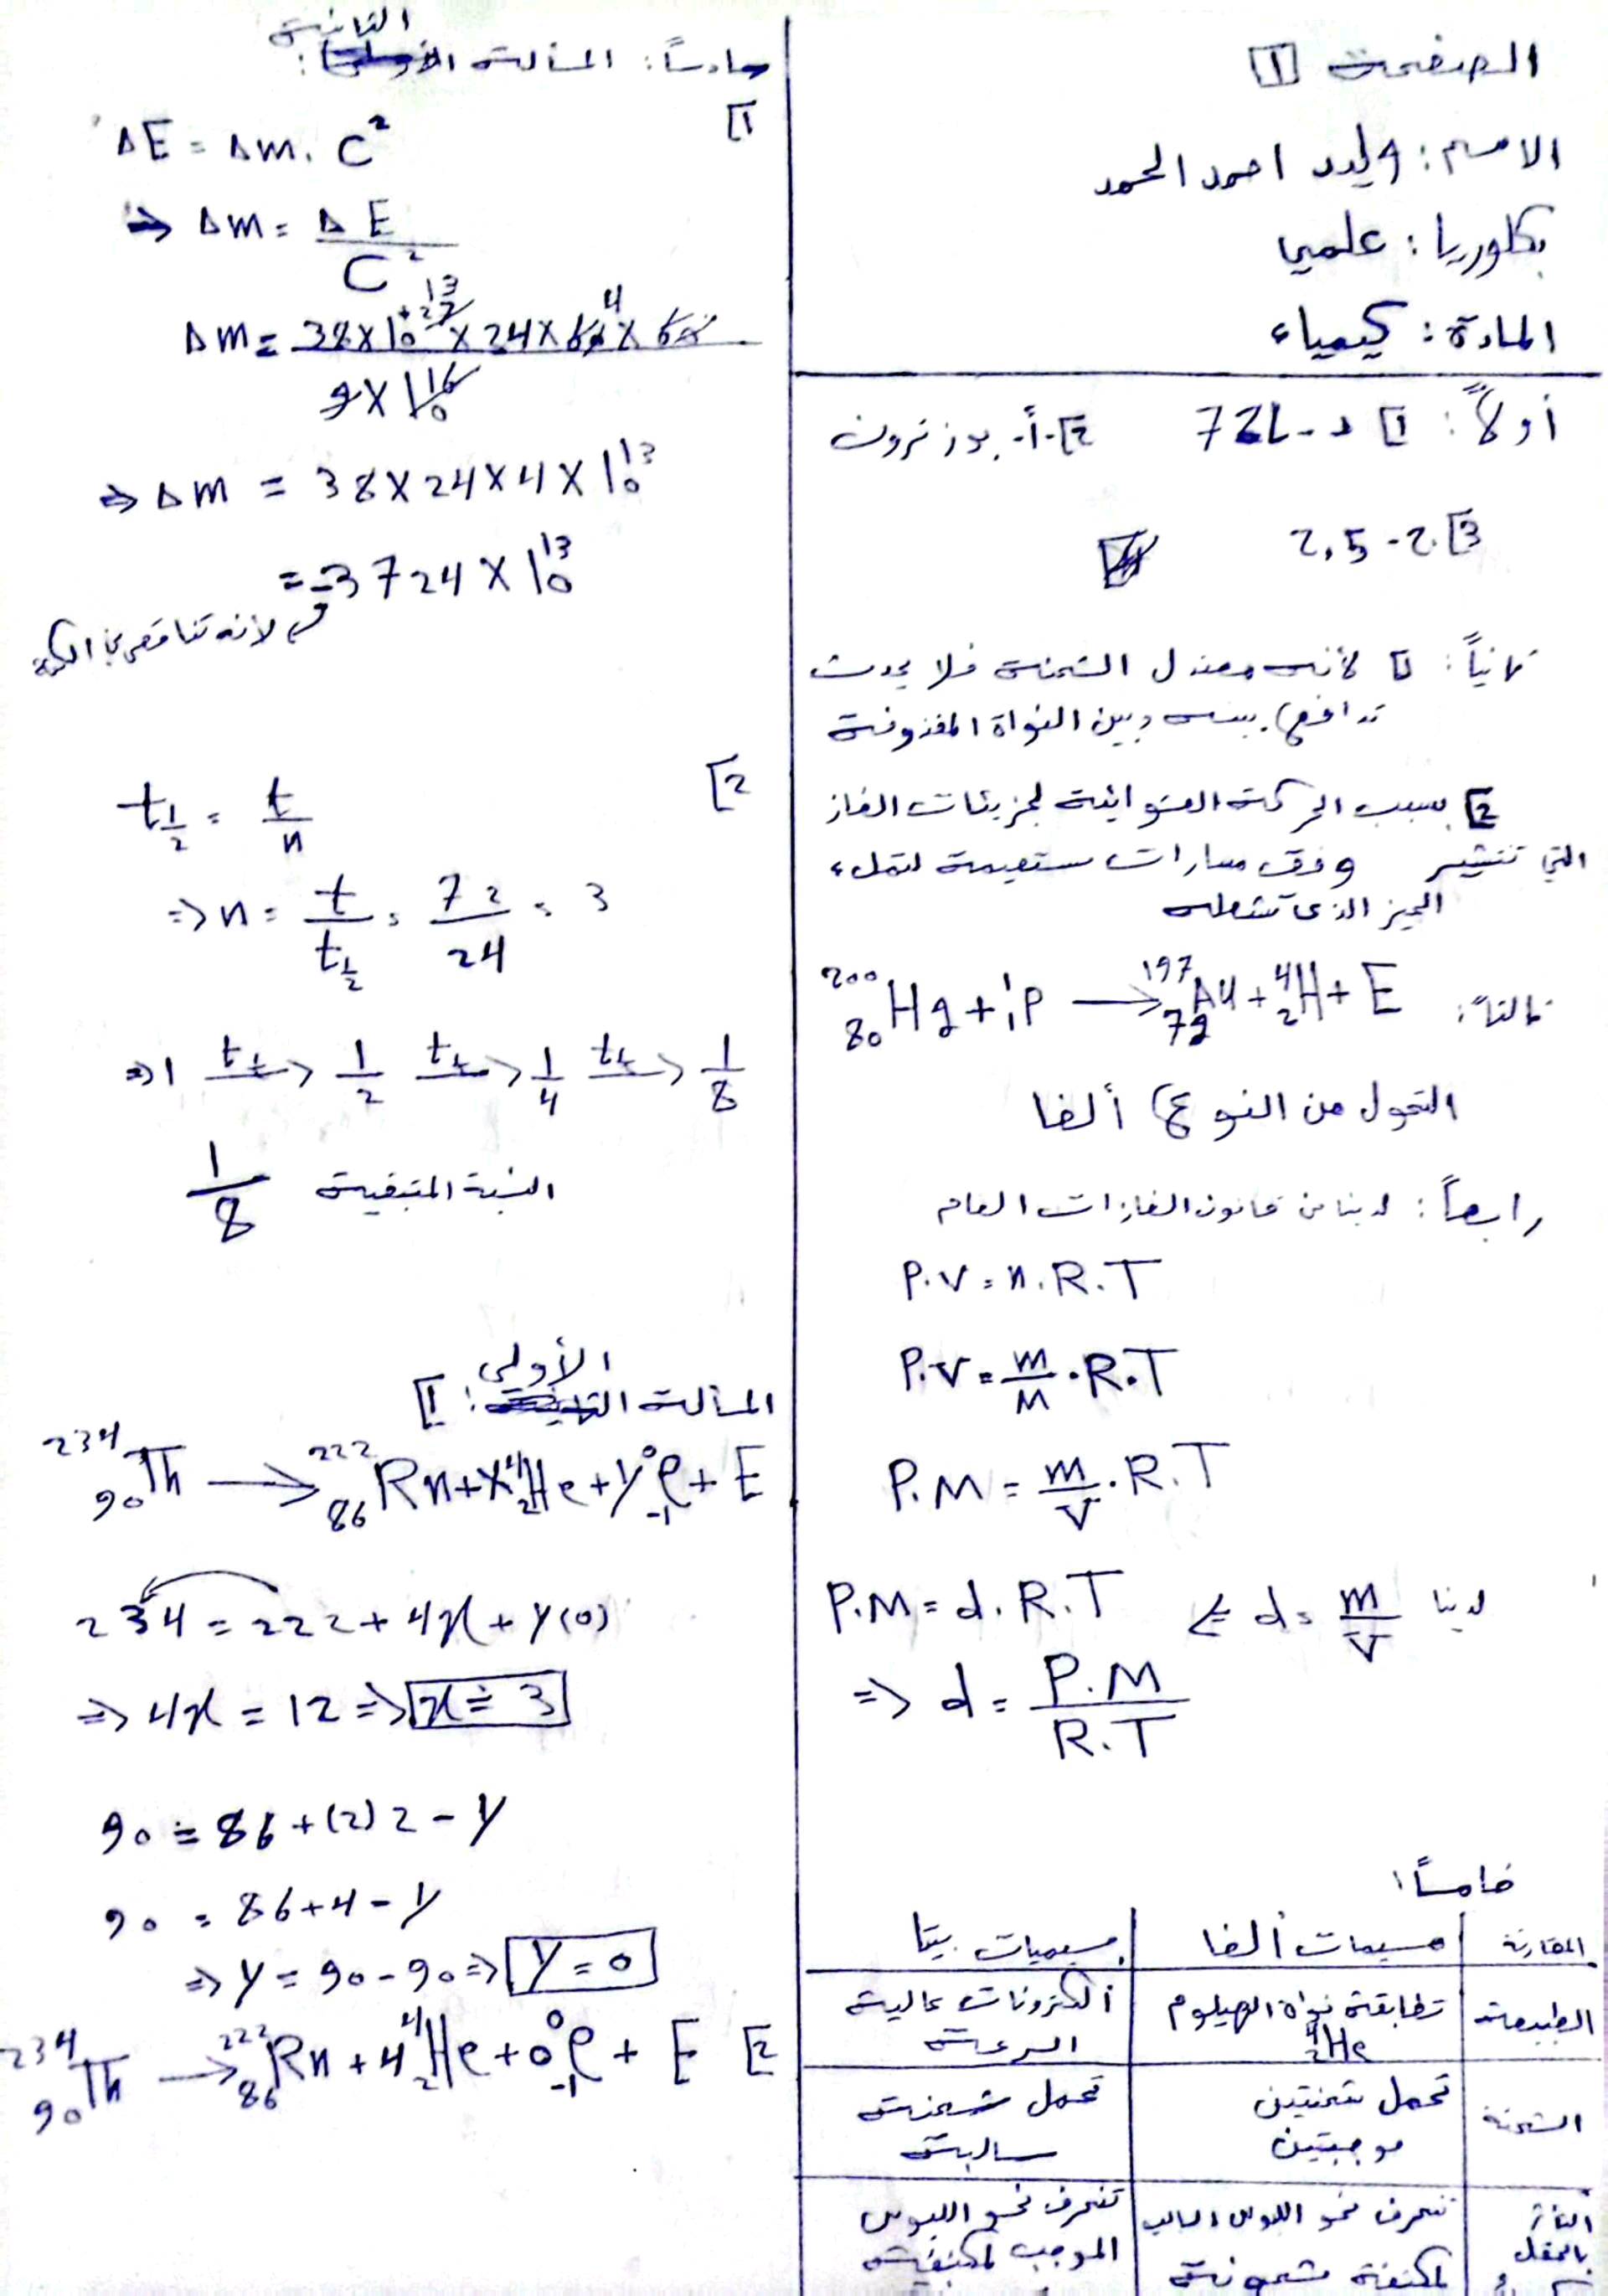 الصفحة 1
الاسم: وليد احمد الحمود
بكلوريا: علمي
المادة: كيمياء
أولاً: 1 د - 72L 2 - أ - بوزترون
3 . 2 - 2,5
ثانياً: 1 لأنه معتدل الشحنة فلا يحدث
تدافع بينه وبين النواة المقذوفة
2 بسبب الحركة العشوائية لجزيئات الغاز
التي تنتشر وفق مسارات مستقيمة لتملء
الحيز الذي تشغله
ثالثاً: ²⁰⁰₈₀Hg + ¹₁P → ¹⁹⁷₇₉Au + ⁴₂H + E
التحول من النوع ألفا
رابعاً: لدينا من قانون الغازات العام
P.V = n.R.T
P.V = m/M . R.T
P.M = m/V . R.T
لدينا d = m/V ⇐ P.M = d.R.T
=> d = P.M / R.T
خامساً:
المقارنة | جسيمات ألفا | جسيمات بيتا
الطبيعة | تطابقة نواة الهيليوم ⁴₂He | ألكترونات عالية السرعة
الشحنة | تحمل شحنتين موجبتين | تحمل شحنة سالبة
التأثر بالحقل | تنحرف نحو اللبوس السالب لمكثفة مشحونة | تنحرف نحو اللبوس الموجب لمكثفة
سادساً: المسألة الثانية:
1
ΔE = Δm . C²
=> Δm = ΔE / C²
Δm = 38×10⁺²⁷ ¹³ × 24 × 60 ⁴ × 60 / 9×10¹⁶
=> Δm = 38×24×4×10¹³
= -3724×10¹³
لانه تناقص في الكتلة
2
t½ = t/n
=> n = t/t½ = 72/24 = 3
=> 1 t½→ 1/2 t½→ 1/4 t½→ 1/8
النسبة المتبقية 1/8
المسألة الأولى: 1
²³⁴₉₀Th → ²²²₈₆Rn + X⁴₂He + Y⁰₋₁e + E
234 = 222 + 4x + y(0)
=> 4x = 12 => x = 3
90 = 86 + (2)2 - y
90 = 86 + 4 - y
=> y = 90 - 90 => y = 0
2 ²³⁴₉₀Th → ²²²₈₆Rn + 4⁴₂He + 0⁰₋₁e + E